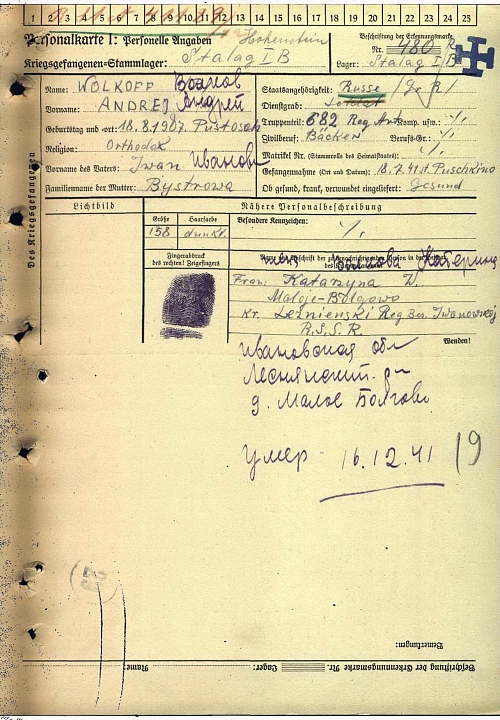 1 2 3 4 5 6 7 8 9 10 11 12 13 14 15 16 17 18 19 20 21 22 23 24 25
Personalkarte I: Personelle Angaben Hohenstein
Kriegsgefangenen-Stammlager: Stalag I B
Beschriftung der Erkennungsmarke
Nr. 480
Lager: Stalag I/B
Name: WOLKOFF Волков
Vorname: ANDREJ Андрей
Geburtstag und -ort: 18.8.1907. Pustosch
Religion: Orthodox
Vorname des Vaters: Iwan Иванови
Familienname der Mutter: Bystrowa
Staatsangehörigkeit: Russe
Dienstgrad: Soldat
Truppenteil: 682 Reg. Art Komp. usw.: ./.
Zivilberuf: Bäcker Berufs-Gr.: ./.
Matrikel Nr. (Stammrolle des Heimatstaates): ./.
Gefangennahme (Ort und Datum): 18.7.41 Puschkino
Ob gesund, krank, verwundet eingeliefert: Gesund
Des Kriegsgefangenen
Lichtbild
Nähere Personalbeschreibung
Größe Haarfarbe Besondere Kennzeichen:
158 dunkl. ./.
Fingerabdruck
des rechten! Zeigefingers
Frau: Katarzyna W.
Maloje-Bolgowo
Kr. Lesnienski Reg Bes. Iwanowskoj
R.S.S.R.
Wenden!
Ивановская обл
Леснянский р-н
д. Малое Болгово
умер - 16.12.41
19
Bemerkungen:
Beschriftung der Erkennungsmarke Nr. Lager: Name: